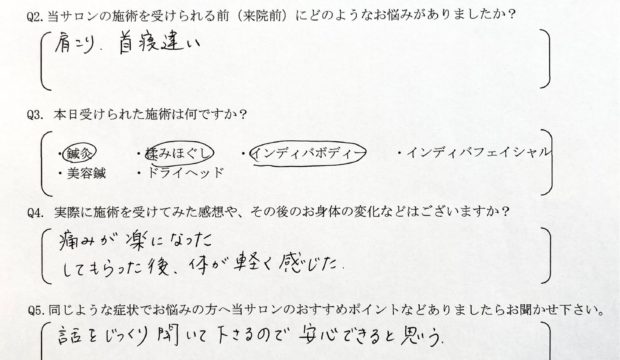 Q2.当サロンの施術を受けられる前（来院前）にどのようなお悩みがありましたか？
肩こり、首寝違い
Q3. 本日受けられた施術は何ですか？
・鍼灸 ・揉みほぐし ・インディバボディー ・インディバフェイシャル
・美容鍼 ・ドライヘッド
Q4. 実際に施術を受けてみた感想や、その後のお身体の変化などはございますか？
痛みが楽になった
してもらった後、体が軽く感じた.
Q5.同じような症状でお悩みの方へ当サロンのおすすめポイントなどありましたらお聞かせ下さい。
話をじっくり聞いて下さるので安心できると思う.